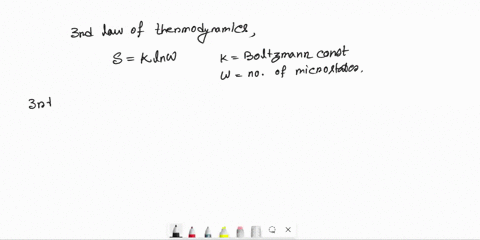 3nd law of thermodynamics,
S = k ln w K = Boltzmann const
w = no. of microstates.
3nt